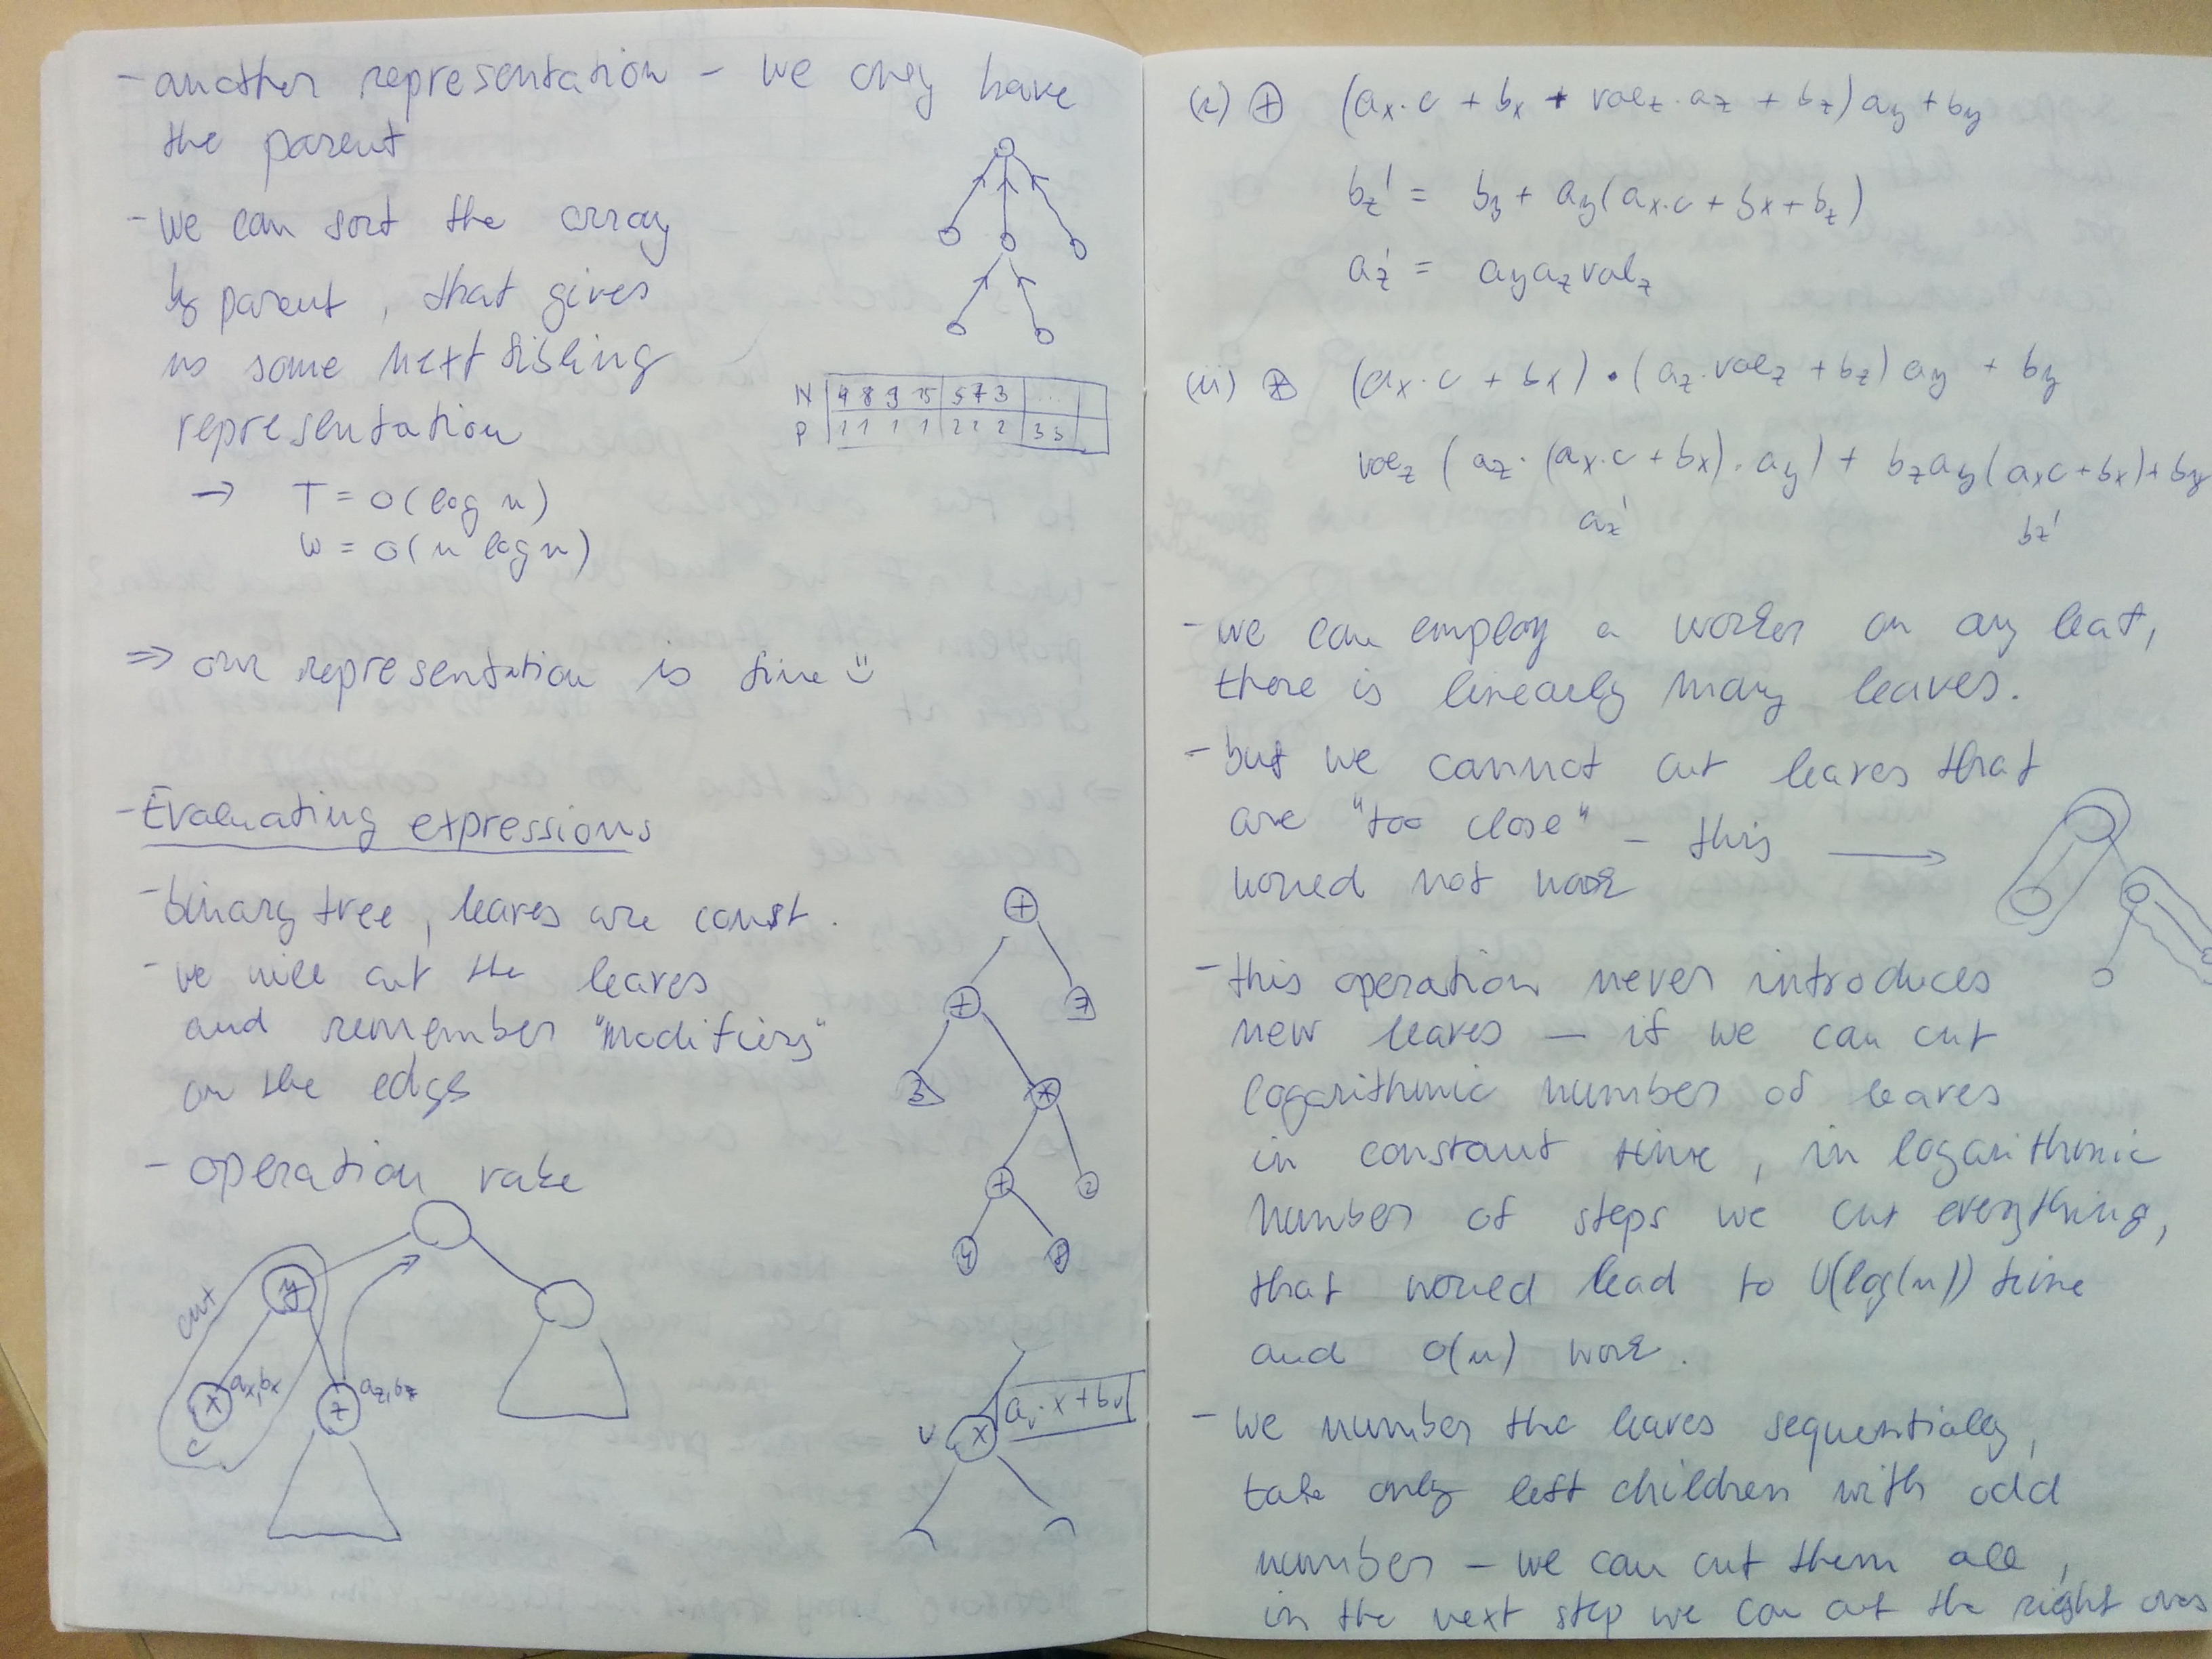 - another representation - we only have
the parent
- we can sort the array
by parent, that gives
us some next sibling
representation
→ T = O(log n)
W = O(n log n)
N 4 8 9 15 5 7 3 ...
P 1 1 1 1 2 2 2 3 3
⇒ our representation is fine ü
- Evaluating expressions
- binary tree, leaves are const.
- we will cut the leaves
and remember "modifiers"
on the edges
- operation rake
+
+ 7
3 *
+ 2
4 8
cut
y
x ax,bx
z az,bz
c
v x av·x+bv
(i) ⊕ (ax·c + bx + valz·az + bz) ay + by
bz' = by + ay(ax·c + bx + bz)
az' = ay az valz
(ii) (ax·c + bx) · (az·valz + bz) ay + by
valz (az·(ax·c + bx)·ay) + bz ay(axc + bx) + by
az' bz'
- we can employ a worker on any leaf,
there is linearly many leaves.
- but we cannot cut leaves that
are "too close" - this →
would not work
- this operation never introduces
new leaves - if we can cut
logarithmic number of leaves
in constant time, in logarithmic
number of steps we cut everything,
that would lead to O(log(n)) time
and O(n) work.
- we number the leaves sequentially,
take only left children with odd
number - we can cut them all,
in the next step we can cut the right ones